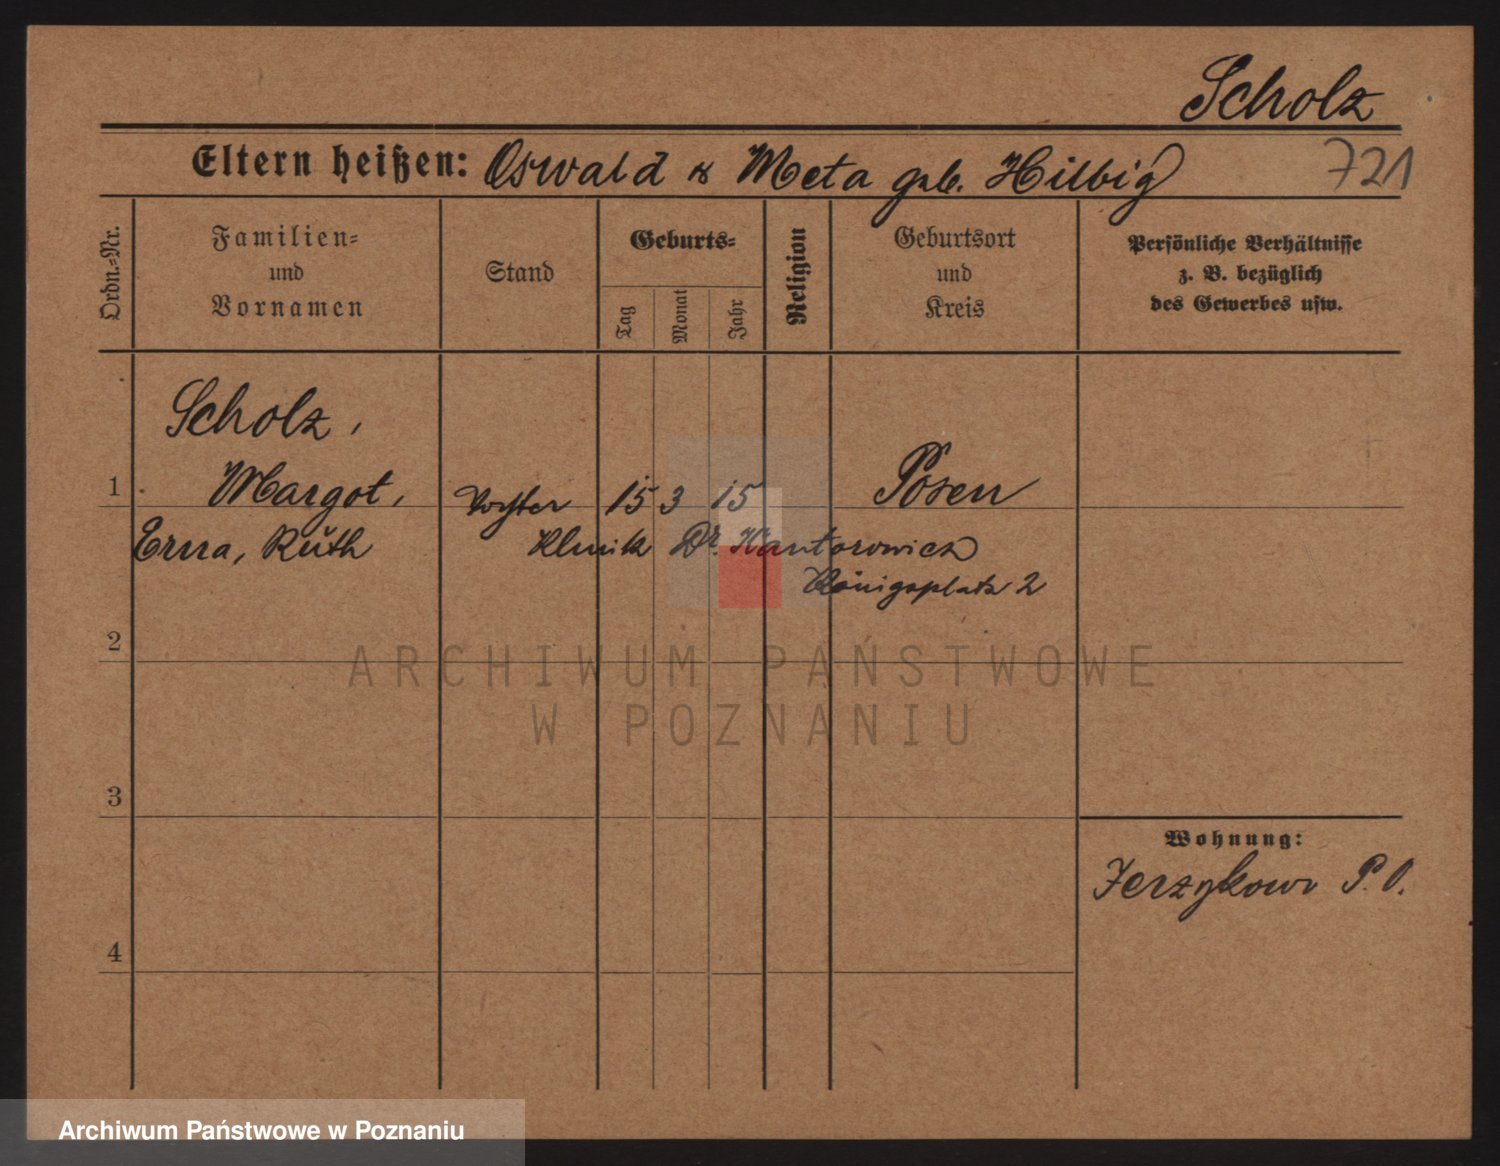 Scholz
Eltern heißen: Oswald & Meta geb. Hilbig
721
Ordn.-Nr.
Familien-
und
Vornamen
Stand
Geburts-
Tag
Monat
Jahr
Religion
Geburtsort
und
Kreis
Persönliche Verhältnisse
z. B. bezüglich
des Gewerbes usw.
Scholz,
1 Margot, 15 3 15 Posen
Erna, Ruth Klinik Dr. Kantorowicz
Königsplatz 2
2
ARCHIWUM PAŃSTWOWE
W POZNANIU
3
Wohnung:
Jerzykowo P. O.
4
Archiwum Państwowe w Poznaniu